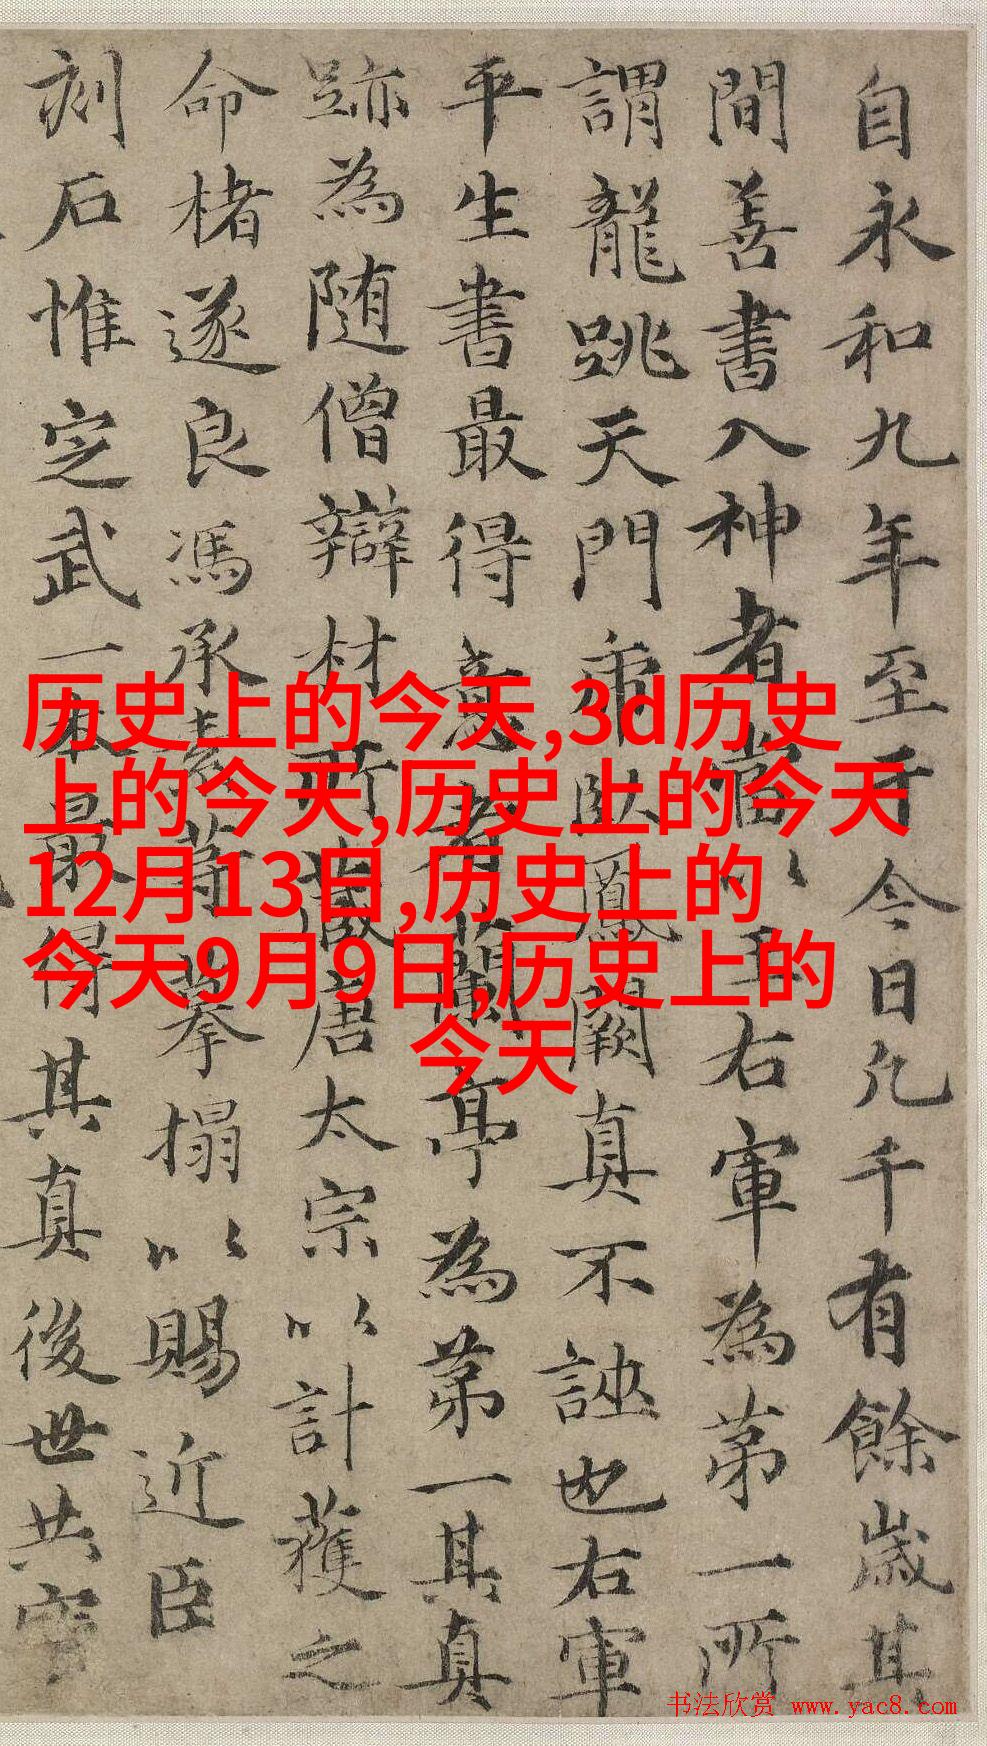 自永和九年至于今日凡千有餘歲其
間善書入神者當以王右軍為第一所
謂龍跳天門虎臥鳳闕真不誣也右軍
平生書最得意者蘭亭為第一其真
跡為随僧辯材所藏唐太宗以計獲之
命楮遂良馮承素等摹搨以賜近臣
刻石惟定武一本最得其真後世共寶
历史上的今天,3d历史
上的今天,历史上的今天
12月13日,历史上的
今天9月9日,历史上的
今天
书法欣赏 www.yac8.com